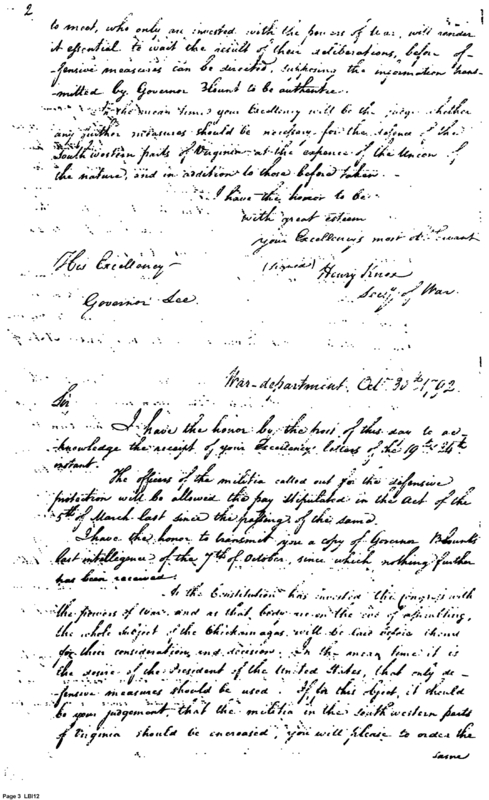 2
to meet, who only are invested with the powers of War, will render
it essential to wait the result of their deliberations, before of-
fensive measures can be directed, supposing the information trans-
mitted by Governor Blount to be authentic.
In the mean time, your Excellency will be the judge whether
any further measures should be necessary for the defence of the
South western parts of Virginia at the expence of the Union of
the nature, and in addition to those before taken.
I have the honor to be
with great esteem
your Excellency's most ob. Servant
(signed) Henry Knox
Secy of War.
His Excellency
Governor Lee.
War-department, Octr 30th 1792.
Sir
I have the honor by the post of this day to ac-
knowledge the receipt of your Excellency's letters of the 19th & 24th
instant.
The officers of the militia called out for the defensive
protection will be allowed the pay stipulated in the Act of the
5th of March last since the passing of the same.
I have the honor to transmit you a copy of Govenor Blounts
last intellegence of the 7th of October, since which nothing further
has been received.
As the Constitution has invested the Congress with
the powers of War, and as that body are on the eve of assembling,
the whole subject of the Chickamagas will be laid before them
for their consideration and decision. In the mean time it is
the desire of the President of the United States, that only de-
fensive measures should be used. If for this object, it should
be your judgement, that the militia in the south western parts
of Virginia should be encreased, you will please to order the
same
Page 3 LBI12